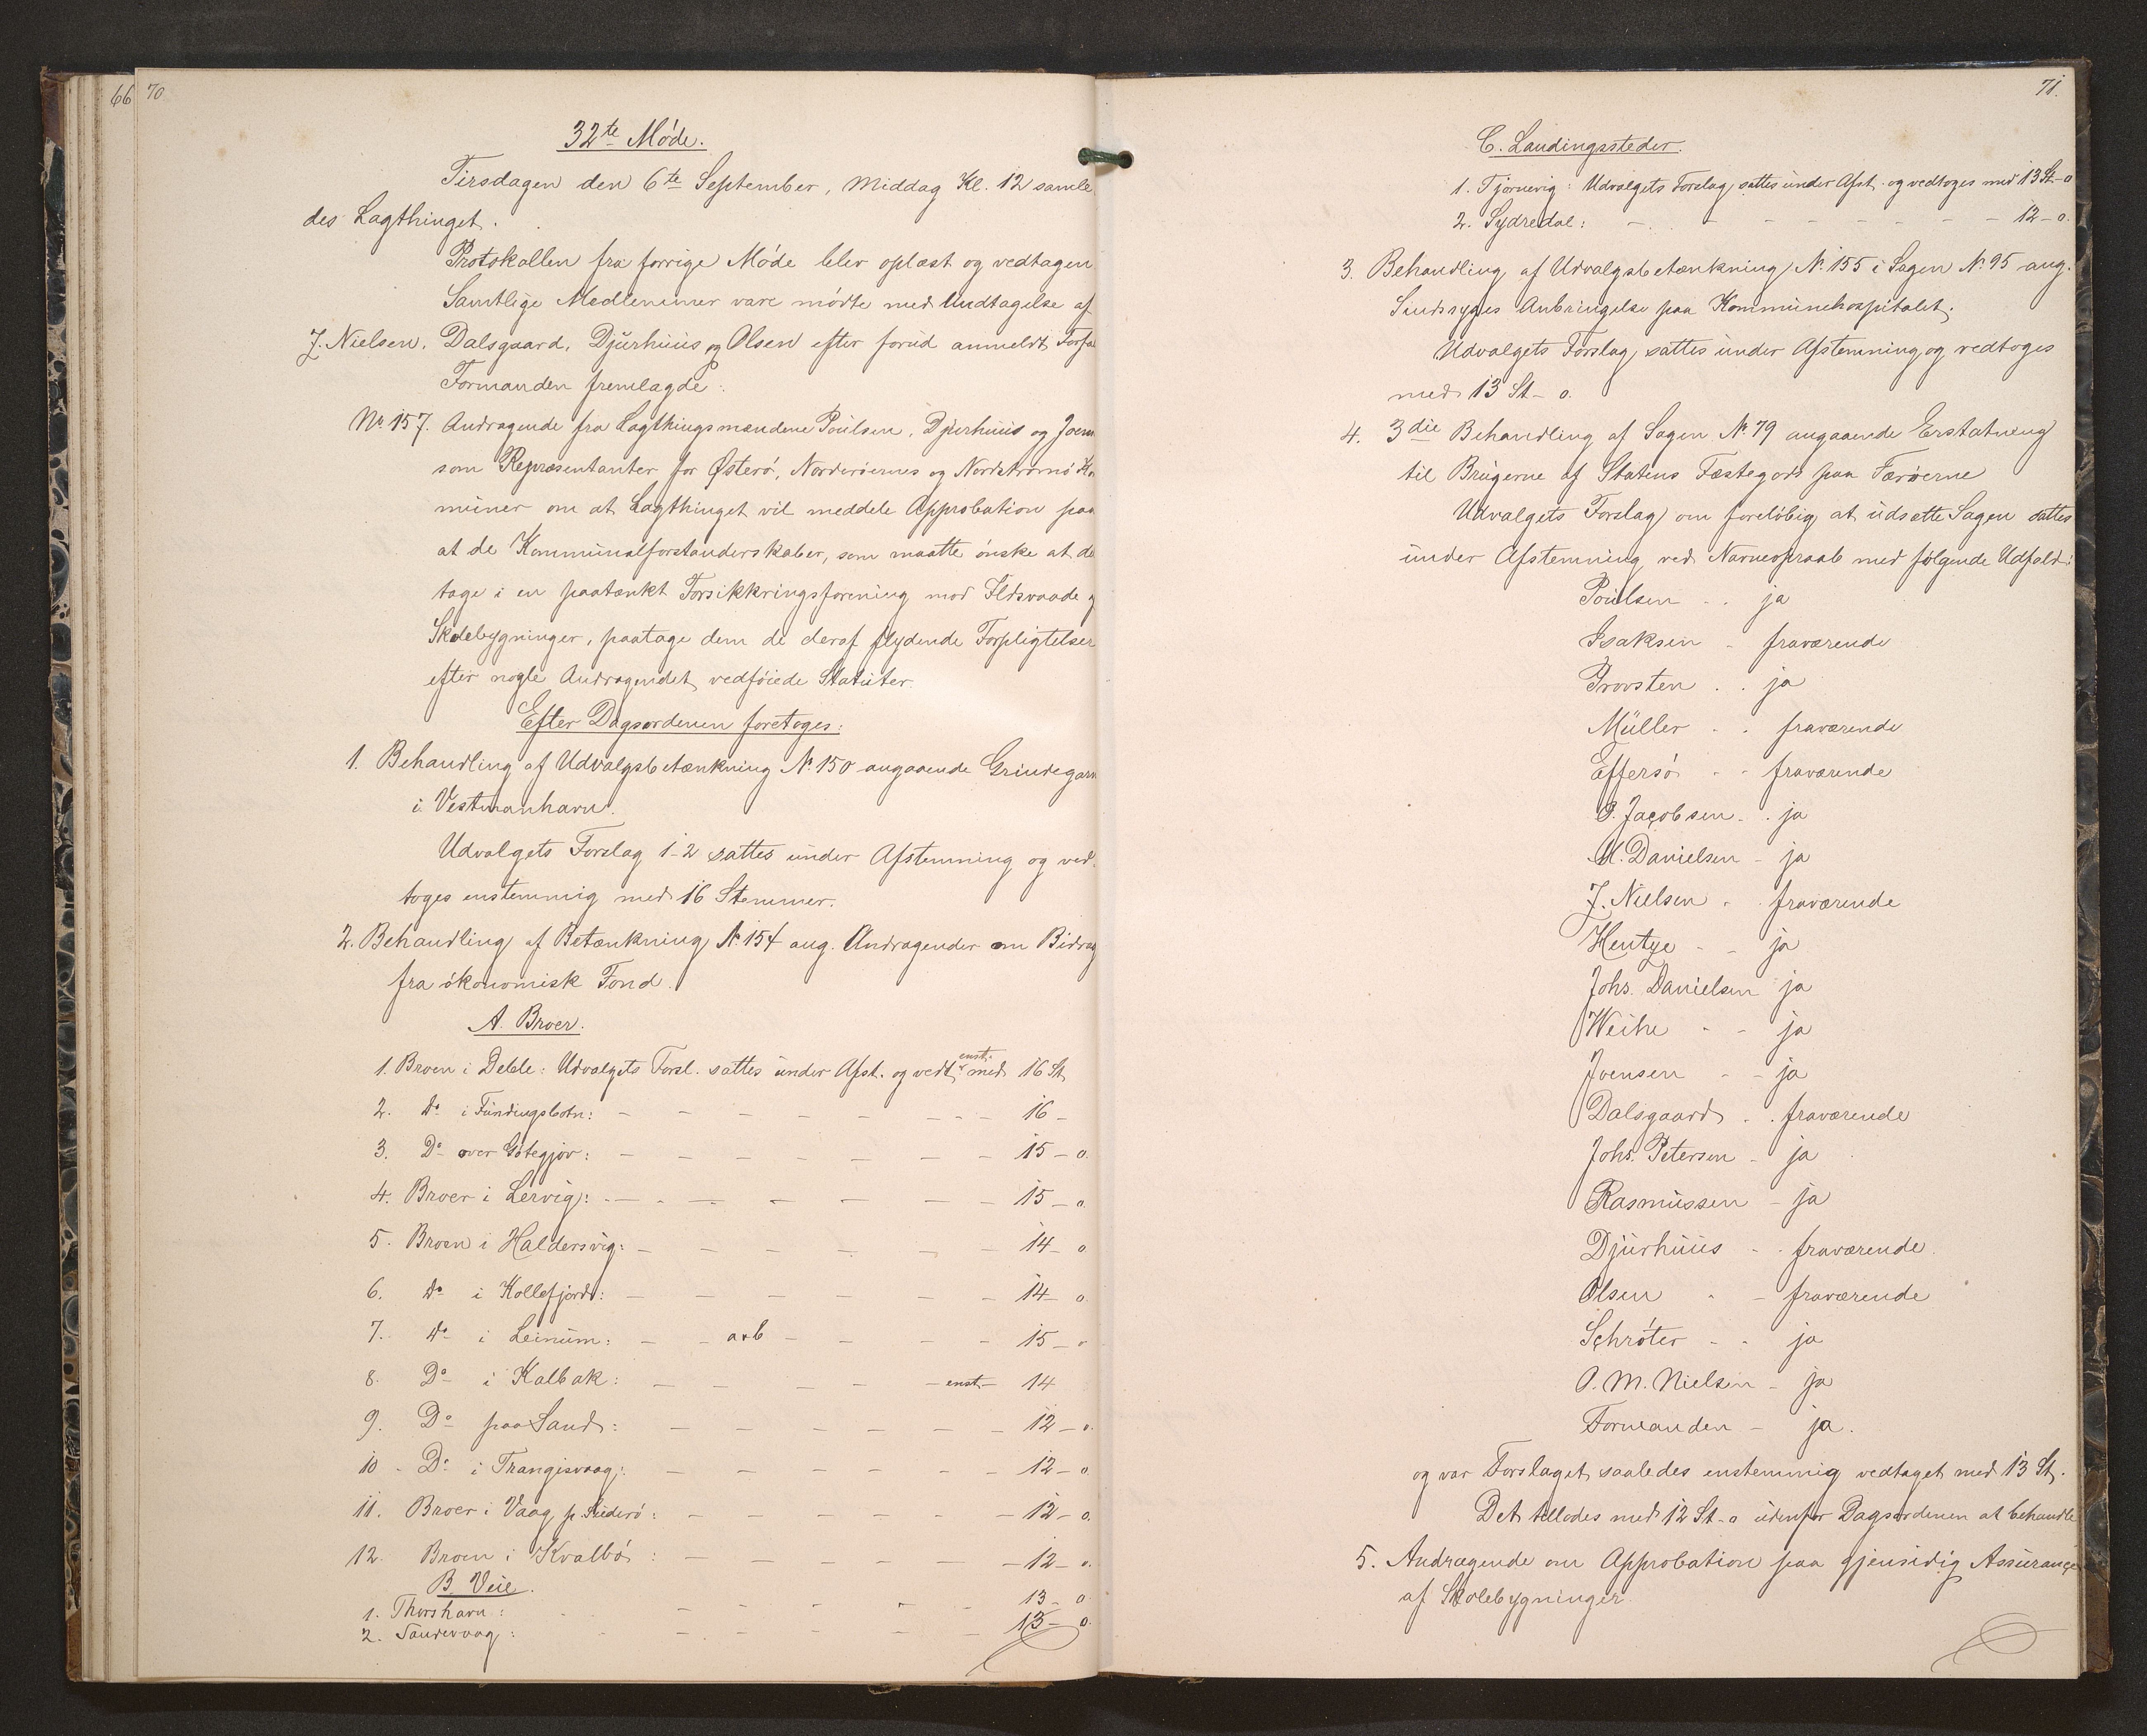 66 70
32te Møde.
Tirsdagen den 6te September, Middag Kl. 12 samle
des Lagthinget.
Protokollen fra forrige Møde blev oplæst og vedtagen
Samtlige Medlemmer vare mødte med Undtagelse af
J. Nielsen, Dalsgaard, Djurhuus og Olsen efter forud anmeldt Forfa
Formanden fremlagde:
No 157. Andragende fra Lagthingsmændene Poulsen, Djurhuus og Joen
som Repræsentanter for Østerø, Norderøernes og Nordstrømø Ko
muner om at Lagthinget vil meddele Approbation paa
at de Kommunalforstanderskaber, som maatte ønske at de
tage i en paatænkt Forsikkringsforening mod Ildsvaade
Skolebygninger, paatage dem de deraf flydende Forpligtelser
efter nogle Andragendet vedføiede Statuter
Efter Dagsordenen foretoges:
1. Behandling af Udvalgsbetænkning No 150 angaaende Grindegarn
i Vestmanhavn.
Udvalgets Forslag 1-2 sattes under Afstemning og ved-
toges enstemmig med 16 Stemmer.
2. Behandling af Betænkning No 154 ang. Andragender om Bidrag
fra økonomisk Fond.
A. Broer.
1. Broen i Deble: Udvalgets Forsl. sattes under Afst. og vedt. enst. med 16 St
2. Do i Fundingsbotn: - - - - - - - 16 -
3. Do over Gøtegjov: - - - - - - - 15 - 0.
4. Broer i Lervig: - - - - - - - 15 - 0
5. Broen i Haldersvig: - - - - - - 14 - 0
6. Do i Kollefjord: - - - - - - - 14 - 0.
7. Do i Leinum: - - a+b - - - - 15 - 0
8. Do i Kalbak: - - - - - enst - 14
9. Do paa Sand: - - - - - - - 12 - 0.
10 - Do i Trangisvaag: - - - - - - 12 - 0.
11. Broer i Vaag p. Suderø: - - - - - - 12 - 0.
12. Broen i Kvalbø: - - - - - - 12 - 0.
B. Veie.
1. Thorshavn: - - - - - 13 - 0
2. Sandevaag: - - - - - - 13 - 0.
71.
C. Landingssteder.
1. Tjørnevig: Udvalgets Forslag sattes under Afst. og vedtoges med 13 St - 0
2. Sydredal: - - - - - - - - 12 - 0.
3. Behandling af Udvalgsbetænkning No 155 i Sagen No 95 ang.
Sindssyges Anbringelse paa Kommunehospitalet.
Udvalgets Forslag sattes under Afstemning og vedtoges
med 13 St - 0.
4. 3die Behandling af Sagen No 79 angaaende Erstatning
til Brugerne af Statens Fæstegods paa Færøerne
Udvalgets Forslag om foreløbig at udsætte Sagen sattes
under Afstemning ved Navneopraab med følgende Udfald:
Poulsen - . ja
Isaksen - fraværende
Provsten . . ja
Müller - . fraværende
Effersø - - fraværende
P. Jacobsen - . ja
M. Danielsen - ja
J. Nielsen - . fraværende
Hentze - - ja
Johs. Danielsen ja
Weihe - - ja
Joensen - - ja
Dalsgaard . . fraværende
Johs. Petersen - ja
Rasmussen - ja
Djurhuus - . fraværende
Olsen - - fraværende
Schrøter - - ja
O. M. Nielsen - ja
Formanden - ja.
og var Forslaget saaledes enstemmig vedtaget med 13 St.
Det tillodes med 12 St - 0 udenfor Dagsordenen at behandle
5. Andragende om Approbation paa gjensidig Assurance
af Skolebygninger.